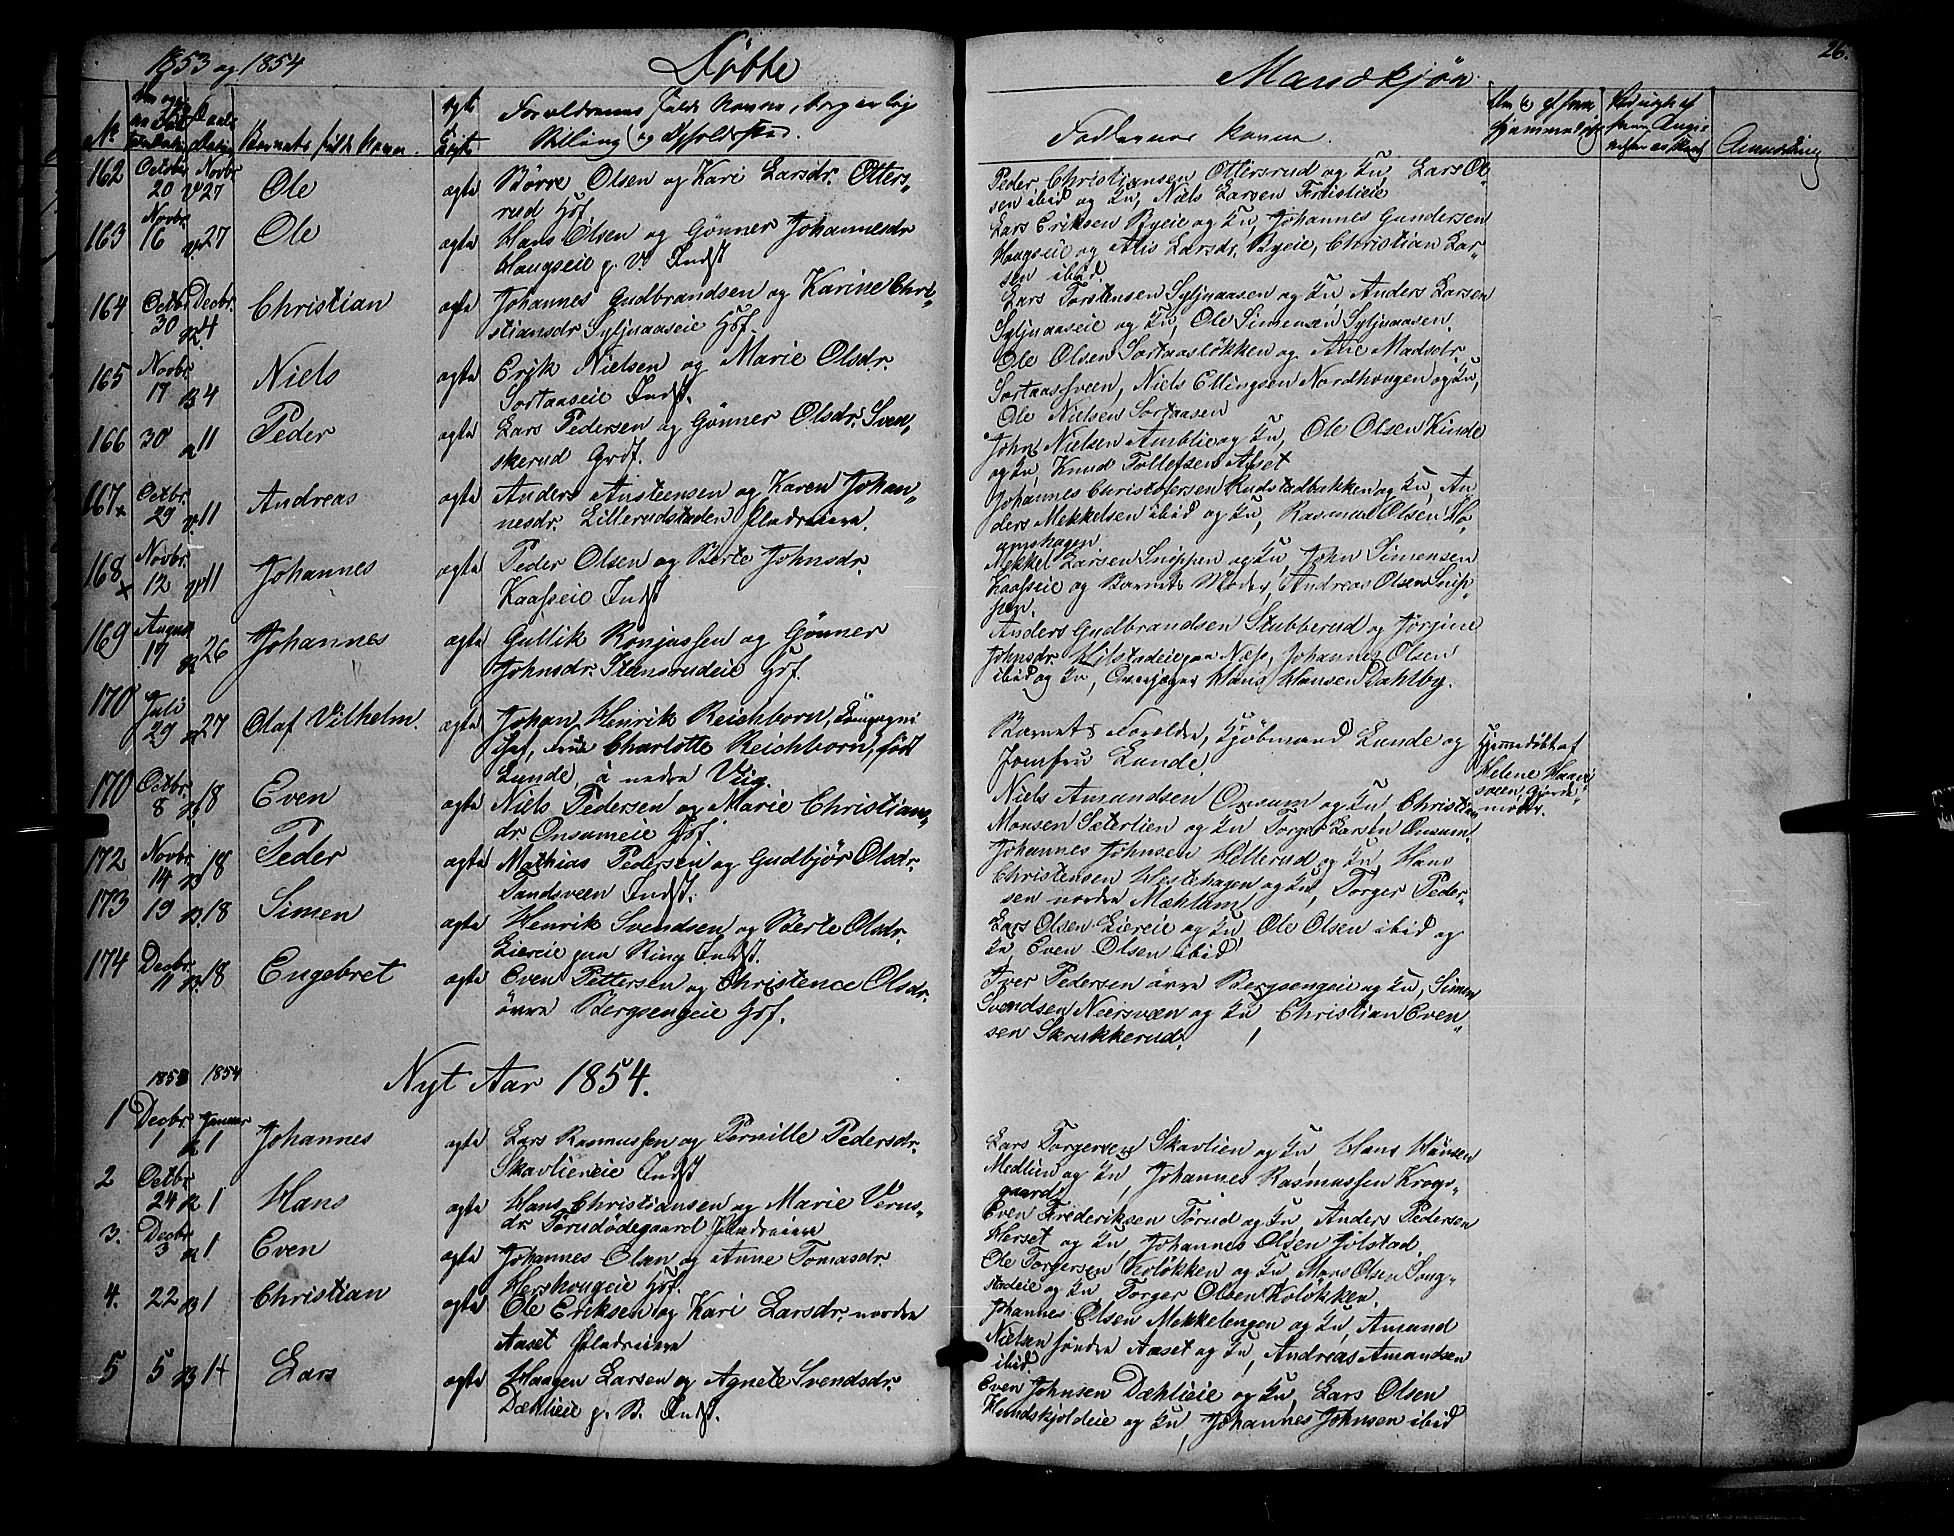 1853 og 1854 Døbte
No Barnets fulde Navn. ægte Forældrenes fulde Navne, Borgerlige
Stilling og Opholdssted.
162 Octbr 20 Novbr 27 Ole ægte Børre Olsen og Kari Larsdr. Otters-
rud Gbf.
163 Novbr 16 27 Ole ægte Hans Olsen og Gønner Johannesdr
Haugseie p. V. Indst
164 Octbr 30 Decbr 4 Christian ægte Johannes Gudbrandsen og Karine Chri-
stiansdr. Syljuaaseie Hsf.
165 Novbr 17 4 Niels ægte Erik Nielsen og Marie Olsdr.
Sortaaseie Indst.
166 30 11 Peder ægte Lars Pedersen og Gønner Olsdr. Sven-
skerud Grdf.
167 x Octbr. 29 11 Andreas ægte Anders Austeensen og Karen Johan-
nesdr. Lillerudstaden Pladseiere.
168 x Novbr. 12 11 Johannes ægte Peder Olsen og Berte Johnsdr.
Kaasseie Indst
169 August 17 26 Johannes ægte Gullik Ronjassen og Gønner
Johnsdr. Stensrudeie Hsf.
170 Juli 29 27 Olaf Vilhelm. ægte Johan Henrik Reichborn, Compagni
chef, Frue Charlotte Reichborn, født
Lunde, à nedre Viig.
170 Octbr. 8 18 Even ægte Niels Pedersen og Marie Christian-
dr. Onsumeie Hsf.
172 Novbr 14 18 Peder ægte Mathias Pedersen og Gudbjør Olsdr.
Sandsveen Indst.
173 19 18 Simen ægte Henrik Svendsen og Berte Olsdr.
Liereie paa Ring Indst.
174 Decbr. 11 18 Engebret ægte Even Pettersen og Christence Olsdr.
øvre Bergsengeie Hsf.
1853 1854 Nyt Aar 1854.
1 Decbr. 1 Januar 1 Johannes ægte Lars Rasmussen og Pernille Pedersdr.
Skavlieneie Indst
2 Octbr 24 1 Hans ægte Hans Christiansen og Marie Verns-
dr. Tørudødegaard Pladseiere
3. Decbr 3 1 Even ægte Johannes Olsen og Anne Tomasdr.
Hershougeie Hsf.
4. 22 1 Christian ægte Ole Eriksen og Kari Larsdr. nordre
Aaset Pladseiere
5 5 1 Lars ægte Haagen Larsen og Agnete Svendsdr.
Dæhlieie p. V. Indst.
26.
Mandkjøn
Faddernes Navne. Anmærkning
Peder Christiansen Ottersrud og Ku, Lars Ol-
sen ibid og Ku, Niels Larsen
Lars Eriksen Byeie og Ku, Johannes Gundersen
Haugseie og Alis Larsdr. Byeie, Christian Lar-
sen ibid.
Lars Torstensen Syljuaasen og Ku Anders Larsen
Syljuaaseie og Ku, Ole Simensen Syljuaasen.
Ole Olsen Sortaasløkken og Alie Madsdr.
Sortaassveen, Niels Ellingsen Nordhougen og Ku,
Ole Nielsen Sortaasen
John Nielsen Amblie og Ku, Ole Olsen Kinde
og Ku, Knud Tollefsen Alset
Johannes Christofersen Rudstadbakken og Ku, An
ders Mekkelsen ibid og Ku, Rasmus Olsen
Mekkel Larsen Snippen og Ku John Simensen
Kaasseie og Barnets Moder, Andreas Olsen Snip-
pen.
Anders Gudbrandsen Stubberud og Jørgine
Johnsdr. paa Næs, Johannes Olsen
ibid og Ku, Overjæger Hans Hansen Dahlby.
Barnets Forældre, Kjøbmand Lunde og
Jomfru Lunde.
Hjemmedøbt af
Helene Haavi-
sveen, Gjorde-
moder.
Niels Amundsen Onsum og Ku Christian
Monsen Sæterlien og Ku Torger Larsen Onsum.
Johannes Johnsen Hellerud og Ku, Hans
Christensen Hestehagen og Ku, Torger Peder-
sen nordre Mæhlum
Lars Olsen Liereie og Ku Ole Olsen ibid og
Ku, Even Olsen ibid
Iver Pedersen øvre Bergsengeie og Ku, Simen
Svendsen Neersveen og Ku Christian Even-
sen Skrukkerud.
Lars Torgersen Skavlien og Ku Hans Hansen
Medlien og Ku, Johannes Rasmussen Krogs-
gaard.
Even Frederiksen Tørud og Ku, Anders Pedersen
Herset og Ku, Johannes Olsen Jølstad.
Ole Torgersen Koløkken og Ku Mons Olsen Soug-
stadeie og Ku Torger Olsen Koløkken.
Johannes Olsen Mekkelengen og Ku, Amund
Nielsen søndre Aaset og Ku, Andreas Amundsen
ibid.
Even Johnsen Dæhlieie og Ku, Lars Olsen
Hundskjoldeie og Ku, Johannes Johnsen ibid